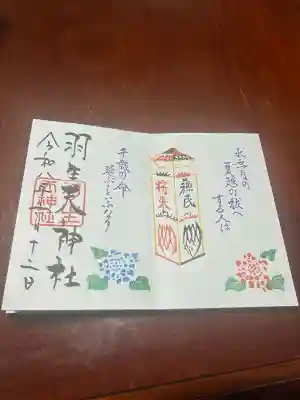 水無月の
夏越の祓へ
する人は
蘇民
将来
千歳の命
延ぶといふなり
羽生天神社
令和八年 月十二日